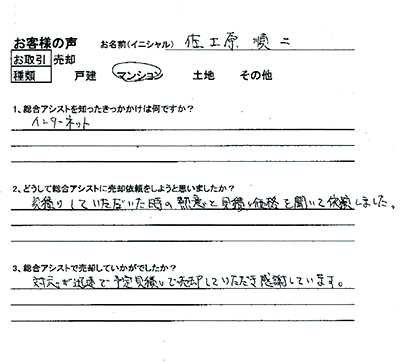 お客様の声 お名前(イニシャル) 佐土原 慎二
お取引 売却
種類 戸建 マンション 土地 その他
1、総合アシストを知ったきっかけは何ですか?
インターネット
2、どうして総合アシストに売却依頼をしようと思いましたか?
見積りしていただいた時の熱意と見積り価格を聞いて依頼しました。
3、総合アシストで売却していかがでしたか?
対応が迅速で予定見積りで売却していただき感謝しています。